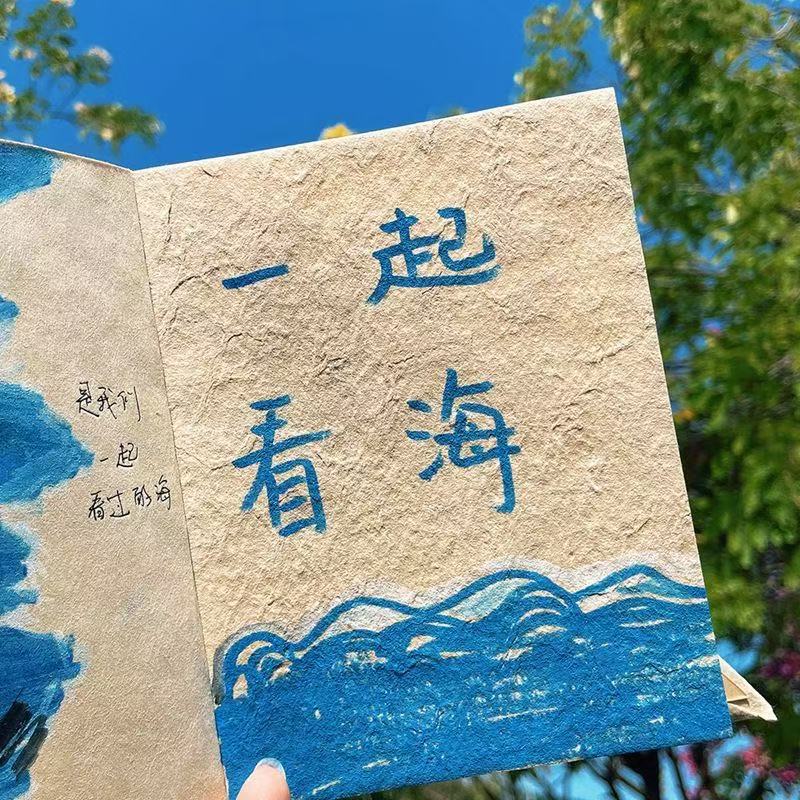 是我们
一起
看过的海
一起
看海